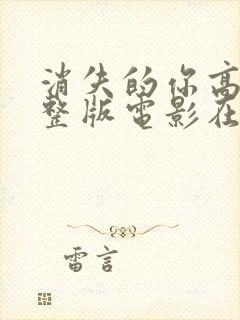 消失的你高
整版電影在
雷言